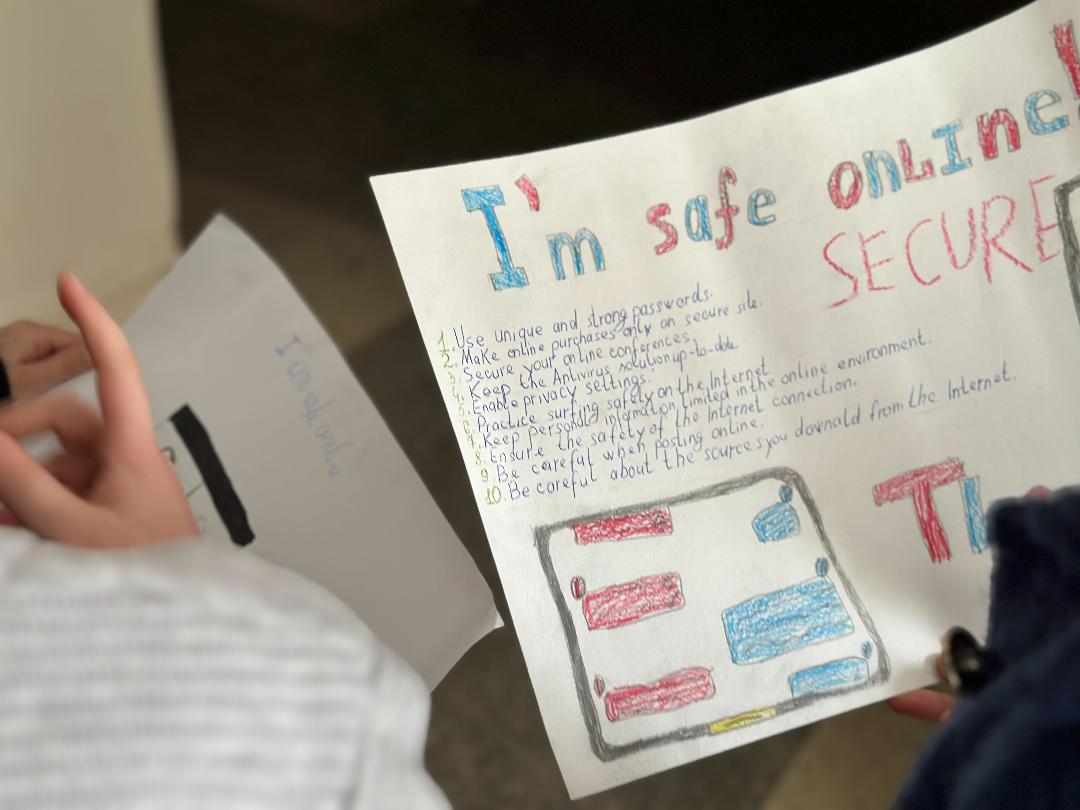 I'm safe onLIne!
SECURE
1. Use unique and strong passwords.
2. Make online purchases only on secure site.
3. Secure your online conferences.
4. Keep the Antivirus solution up-to-date.
5. Enable privacy settings.
6. Practice surfing safety on the Internet
7. Keep personal information limited in the online environment.
8. Ensure the safety of the Internet connection.
9. Be careful when posting online.
10. Be careful about the sources you downald from the Internet.